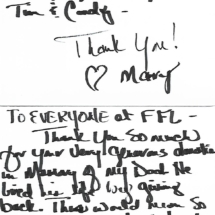 Tim & Candy -
Thank You!
♡ Mary
To EVERYONE at FFL -
Thank You So much
for your very generous donation
in Memory of my Dad. He
lived his life giving
back. This would mean so